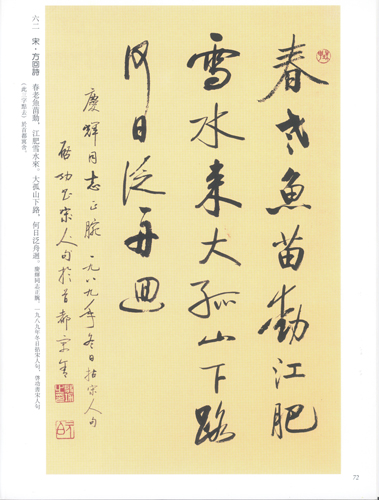 春老魚苗動江肥
雪水来大孤山下路
何日泛舟迴
慶輝同志正腕 一九八九年冬日拈宋人句
啓功書宋人句於首都寓舍
六二 宋·方回詩 春老魚苗動，江肥雪水來。大孤山下路，何日泛舟迴。慶輝同志正腕。一九八九年冬日拈宋人句。啓功書宋人句
（此三字點去）於首都寓舍。
72